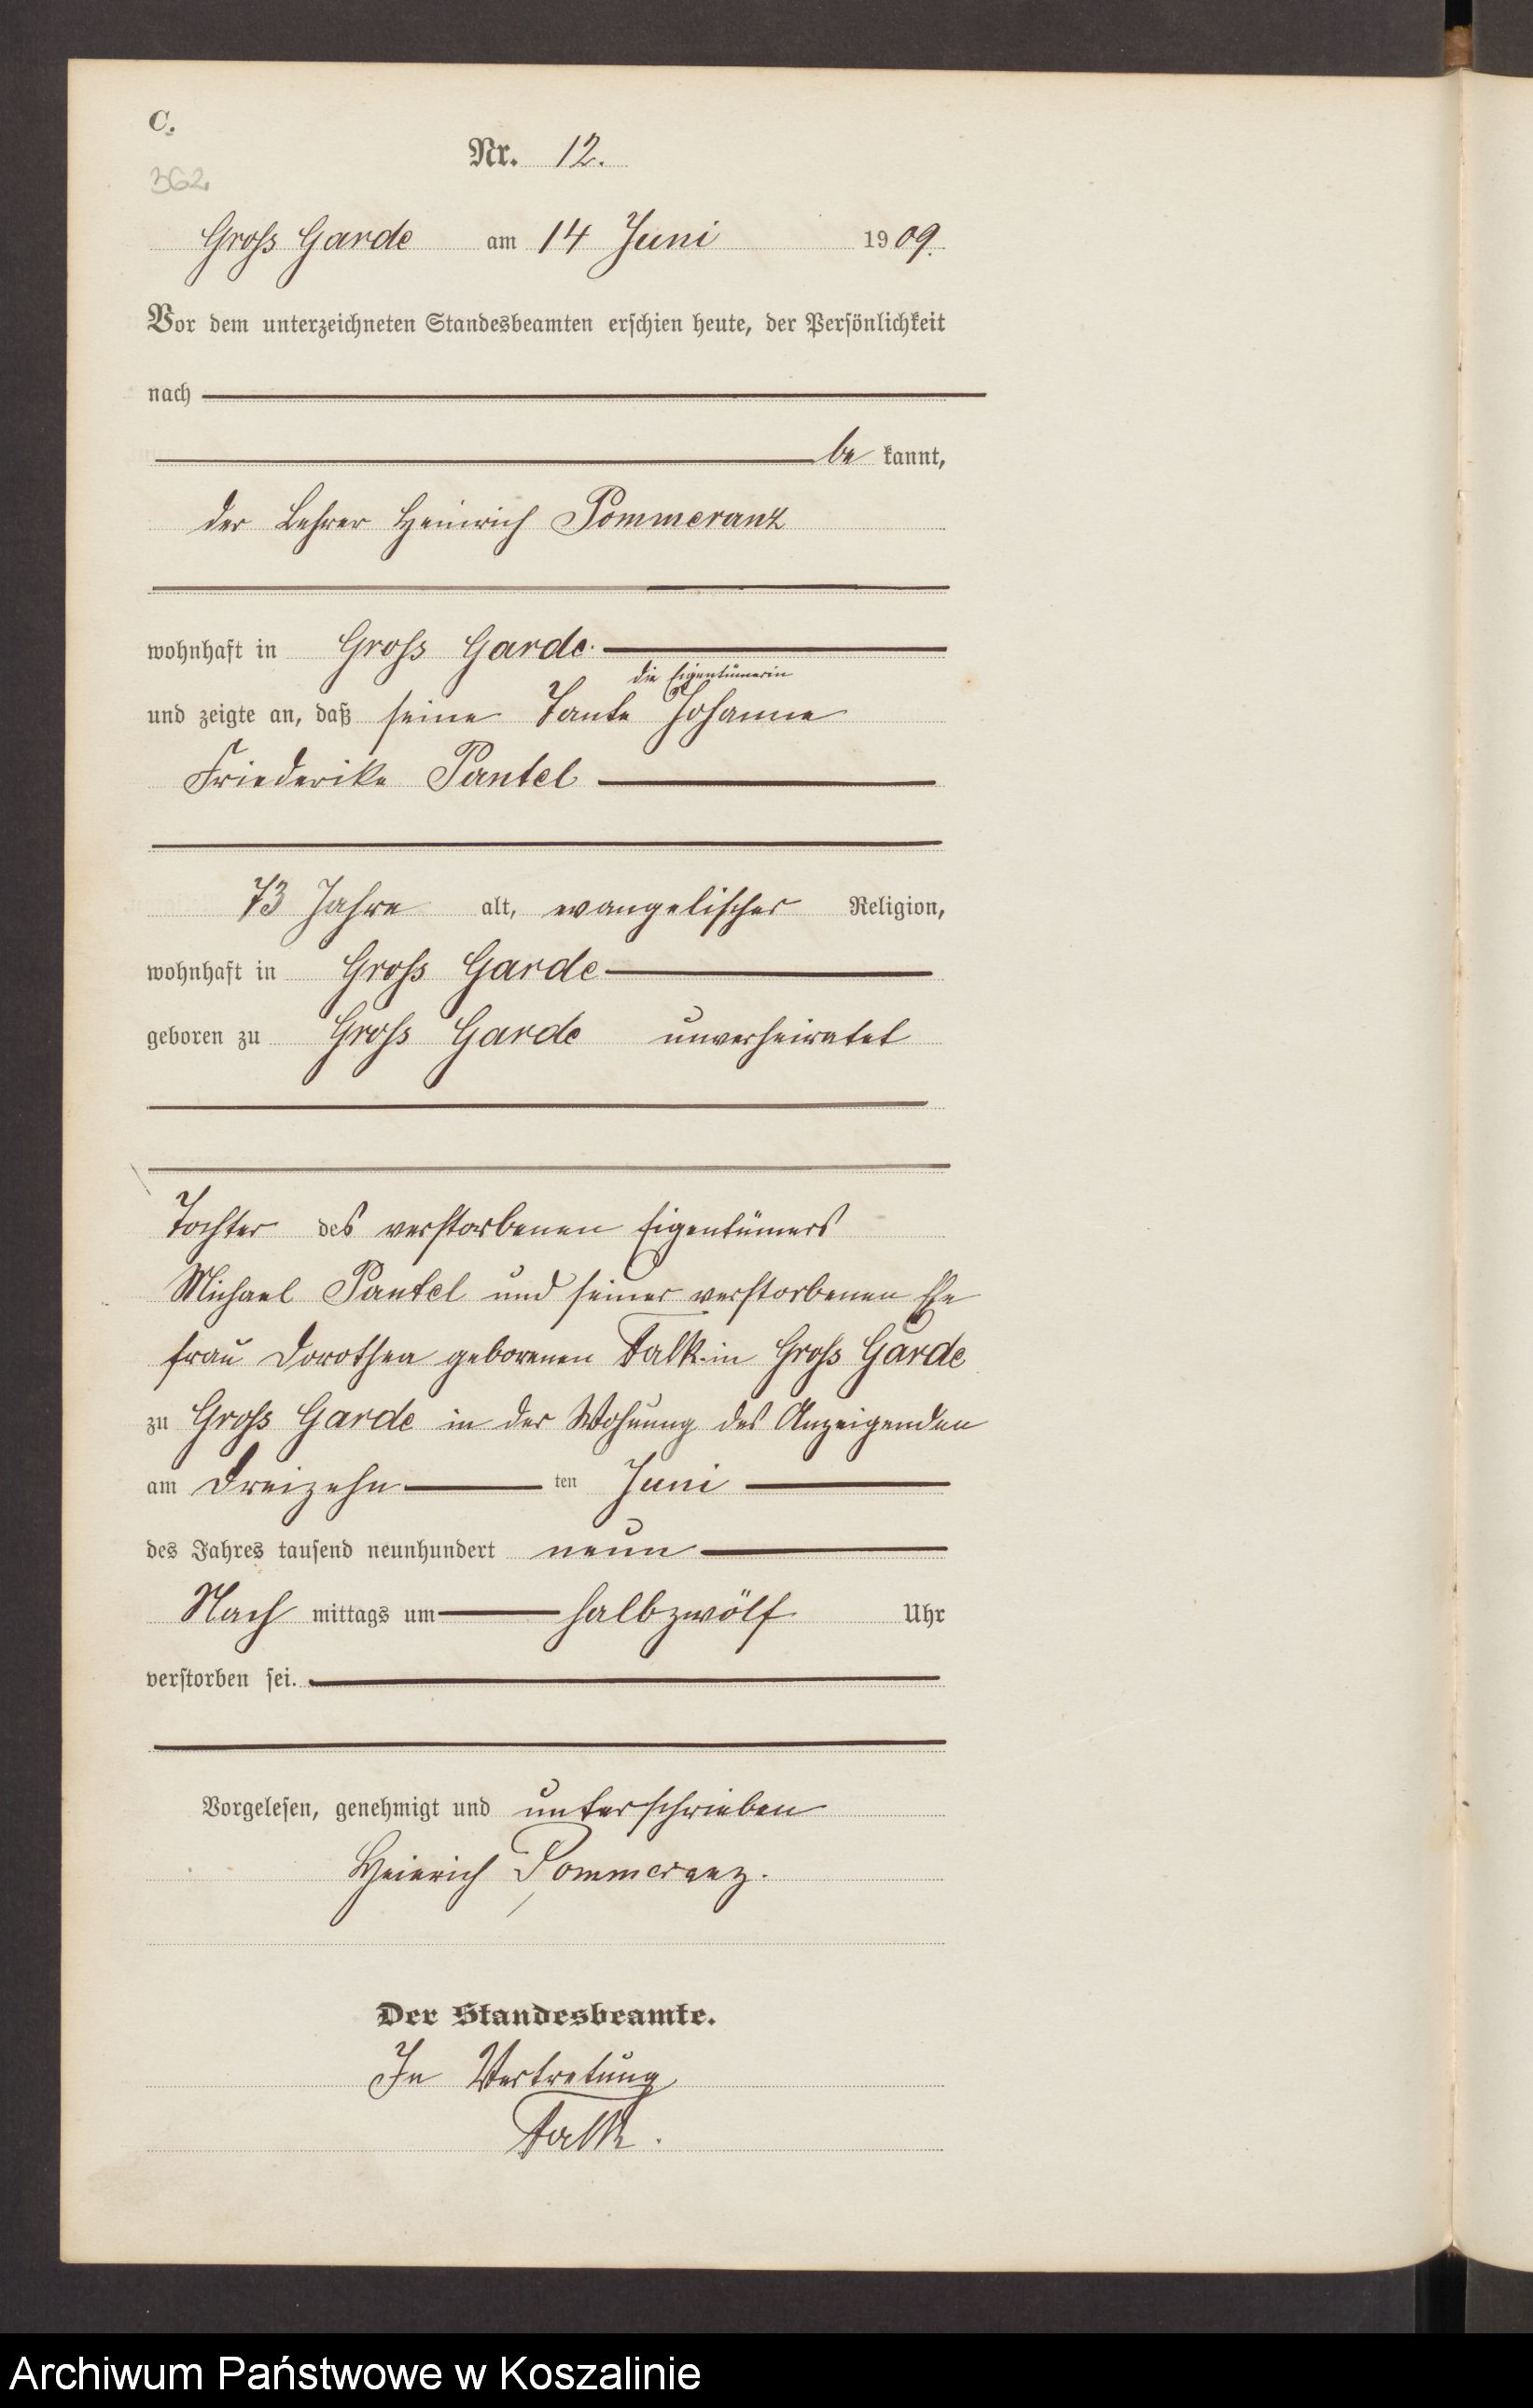 C.
Nr. 12.
362
Gross Garde am 14 Juni 1909.
Vor dem unterzeichneten Standesbeamten erschien heute, der Persönlichkeit
nach
be kannt,
der Lehrer Heinrich Pommeranz
wohnhaft in Gross Garde.
die Eigentümerin
und zeigte an, daß seine Tante Johanne
Friederike Pantel
73 Jahre alt, evangelischer Religion,
wohnhaft in Gross Garde
geboren zu Gross Garde unverheiratet
Tochter des verstorbenen Eigentümers
Michael Pantel und seiner verstorbenen Ehe
frau Dorothea geborenen Falk in Gross Garde
zu Gross Garde in der Wohnung des Anzeigenden
am dreizehn ten Juni
des Jahres tausend neunhundert neun
Nach mittags um halbzwölf Uhr
verstorben sei.
Vorgelesen, genehmigt und unterschrieben
Heinrich Pommeranz.
Der Standesbeamte.
In Vertretung
Falk.
Archiwum Państwowe w Koszalinie